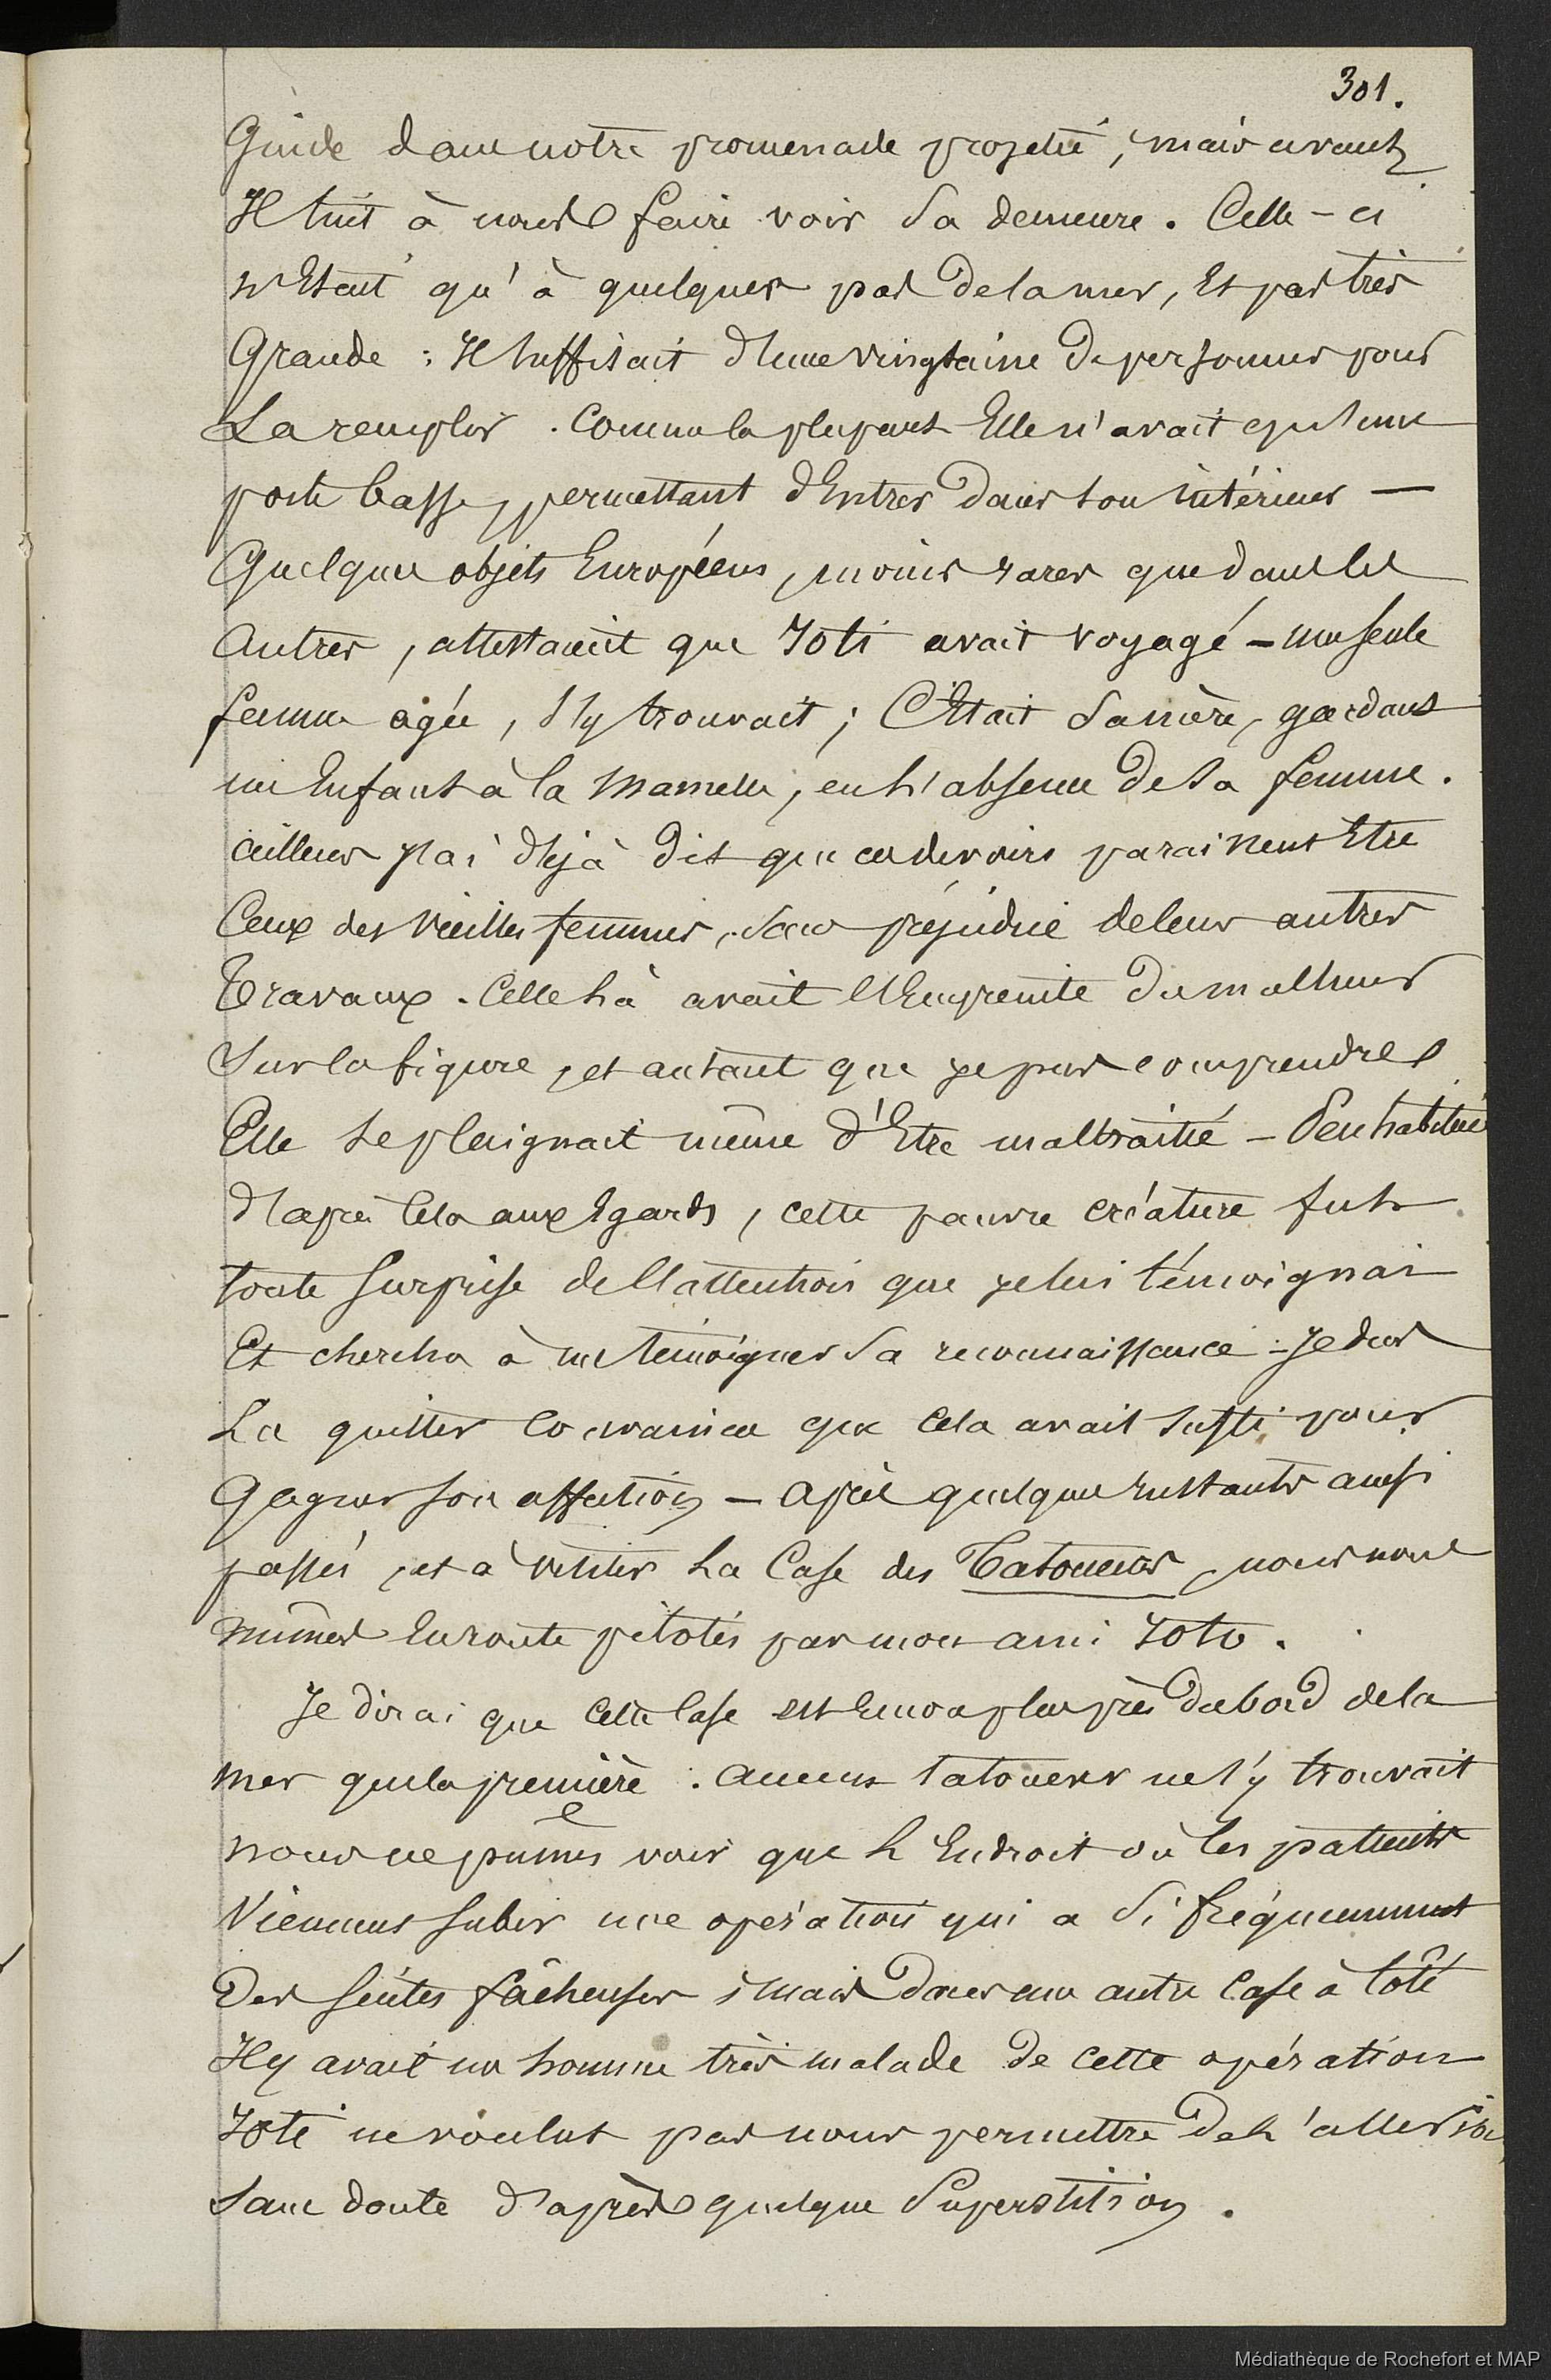 301.
Guide dans notre promenade projetée, mais avant
Il tint à nous faire voir Sa demeure. Celle-ci
n'Etait qu'à quelques pas de la mer, Et pas très
Grande : Il suffisait d'une vingtaine de personnes pour
La remplir. Comme la plupart Elle n'avait qu'une
porte basse, permettant d'Entrer dans son intérieur —
Quelques objets Européens, moins rares que dans les
Autres, attestaient que Toti avait voyagé — une seule
femme agée, s'y trouvait ; C'Etait Sa mère, gardant
un Enfant à la Mamelle, en l'absence de Sa femme.
ailleurs j'ai déjà dit que ces devoirs paraissent Etre
Ceux des vieilles femmes, Sans préjudice de leurs autres
Travaux. Celle là avait l'Empreinte du malheur
Sur la figure, et autant que je pus comprendre
Elle se plaignait même d'Etre maltraitée — Peu habituée
d'après Cela aux Egards, cette pauvre créature fut
toute Surprise de l'attention que je lui témoignai
Et chercha à me témoigner Sa reconnaissance — Je dus
La quitter Convaincu que Cela avait suffi pour
Gagner son affection — Après quelques Instants ainsi
passés, et à visiter La Case des Tatoueurs, nous nous
mîmes En route pilotés par mon ami Toti.
Je dirai que Cette Case est Encore plus près du bord de la
mer que la première. Aucun tatoueur ne s'y trouvait
nous ne pûmes voir que L'Endroit où les patients
Viennent Subir une opération qui a Si fréquemment
Des Suites fâcheuses ; Mais Dans une autre Case à Côté
Il y avait un homme très malade de Cette opération
Toti ne voulut pas nous permettre de l'aller voir,
Sans doute d'après quelque Superstition.
Médiathèque de Rochefort et MAP